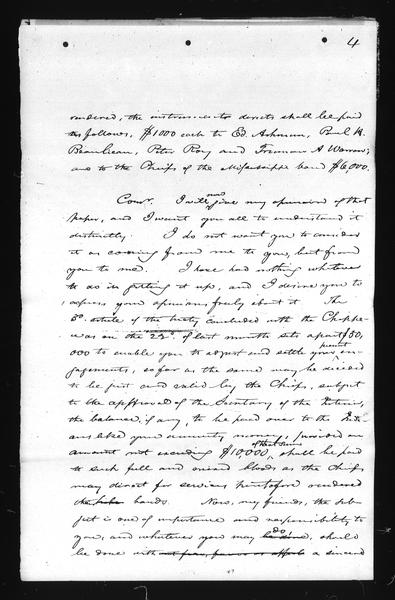 4
rendered, the instrument directs shall be paid
as follows, $1000 each to Ed. Ashmun, Paul H.
Beaulieau, Peter Roy and Truman A Warren,
and to the Chiefs of the Mississippi band $6,000.
Comr. I will now give my opinion of that
paper, and I want you all to understand it
distinctly. I do not want you to consider
it as coming from me to you, but from
you to me. I have had nothing whatever
to do in getting it up, and I desire you to
express your opinions, freely about it. The
3d. article of the treaty concluded with the Chippe-
was on the 22d. of last month sets apart $50,
000 to enable you to adjust and settle your present en-
gagements, so far as the same may be decided
to be just and valid by the Chiefs, subject
to the approval of the Secretary of the Interior,
the balance, if any, to be paid over to the Indi-
ans like your annuity money; provided an
amount not exceeding $10,000, of that sum shall be paid
to such full and mixed bloods as the Chiefs
may direct for services heretofore rendered
bands. Now, my friends, the sub-
ject is one of importance and responsibility to
you, and whatever you may do, should
be done with a sincere